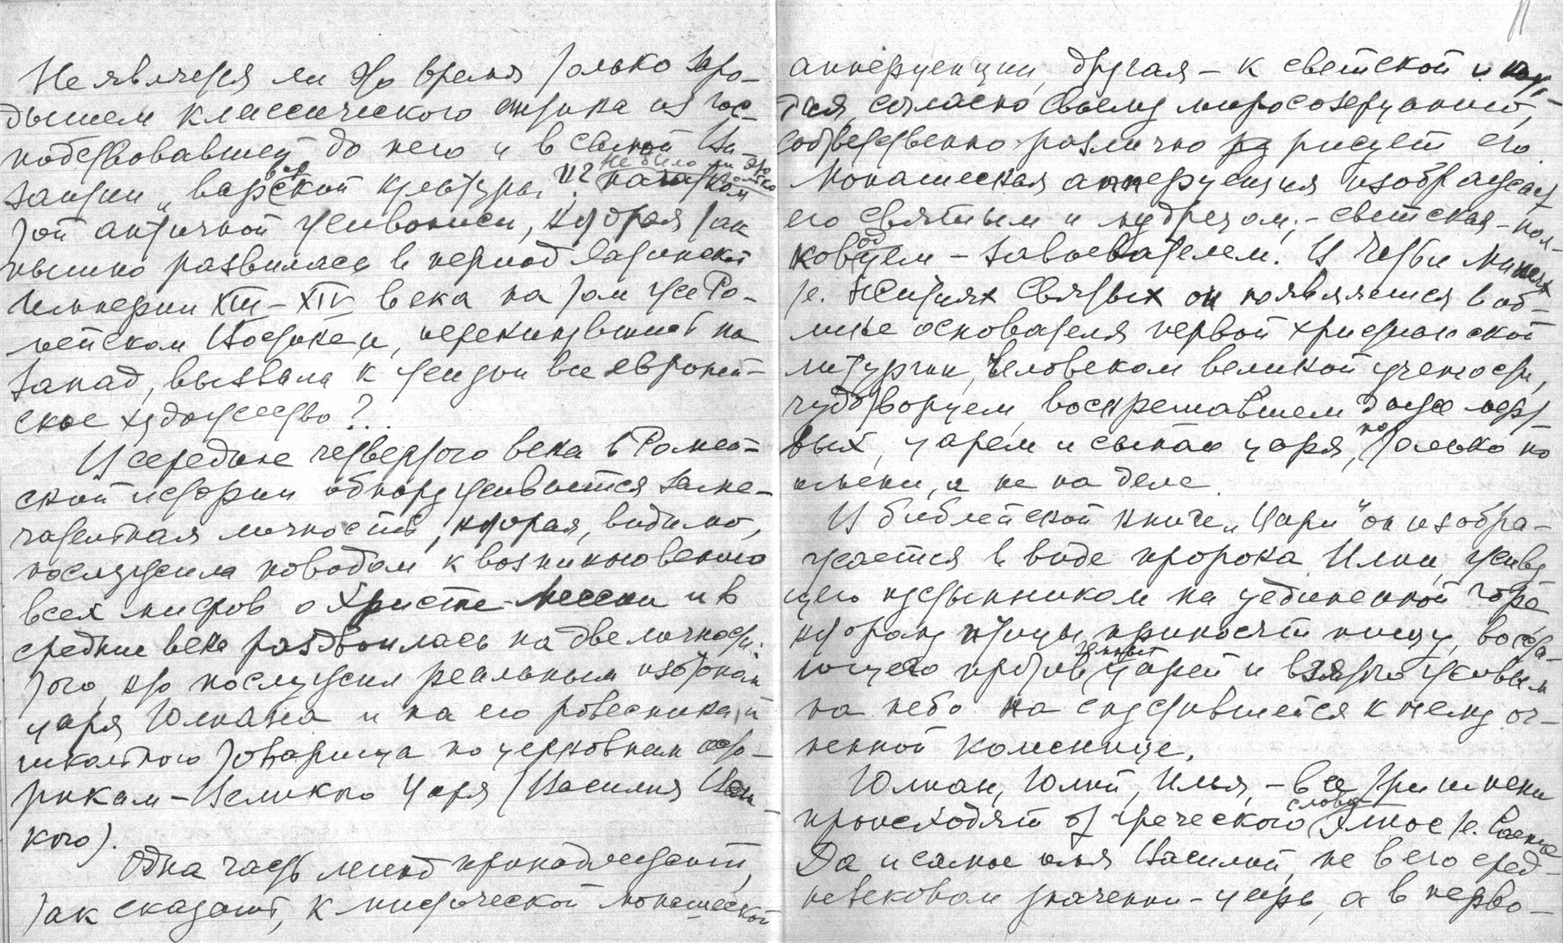 Не является ли это время только заро-
дышем классического отрыва из гос-
подствовавшей до него и в самой Ви-
зантии „варварской культуры"!? Не было ли это только началом
той античной живописи, которая так
пышно развилась в период Латинской
Империи XIII–XIV века на том же Ро-
мейском Востоке и, перекинувшись на
Запад, вызвала к жизни все европей-
ское художество?..
В середине четвертого века в Ромей-
ской истории обнаруживается заме-
чательная личность, которая, видимо,
послужила поводом к возникновению
всех мифов о Христе-Мессии и в
средние века раздвоилась на две личности:
того, кто послужил реальным
царя Юлиана и на его ровесника, и
школьного товарища по церковным исто-
рикам – Великого Царя (Василия Вели-
кого).
Одна часть легенд принадлежит,
так сказать, к мифической монашеской
апперцепции, другая – к светской и каж-
дая, согласно своему миросозерцанию,
соответственно различно рисует его.
Монашеская апперцепция изображает
его святым и мудрецом, – светская – пол-
ководцем – завоевателем. В Четьи Минеях
т.е. Житиях Святых он появляется в об-
лике основателя первой христианской
литургии, человеком великой учености,
чудотворцем, воскрешавшем даже мерт-
вых, царем и сыном царя, но только по
имени, а не на деле.
В библейской книге „Цари" он изобра-
жается в виде пророка Илии, живу
щего пустынником на уединенной горе
которому птицы приносят пищу, восста-
ющего против земных царей и взятого живым
на небо на спустившейся к нему ог-
ненной колеснице.
Юлиан, Юлий, Илья, – все три имени
происходят от греческого слова Элиос т.е. Солнце
Да и самое имя Василий, не в его сред-
невековом значении – царь, а в перво-